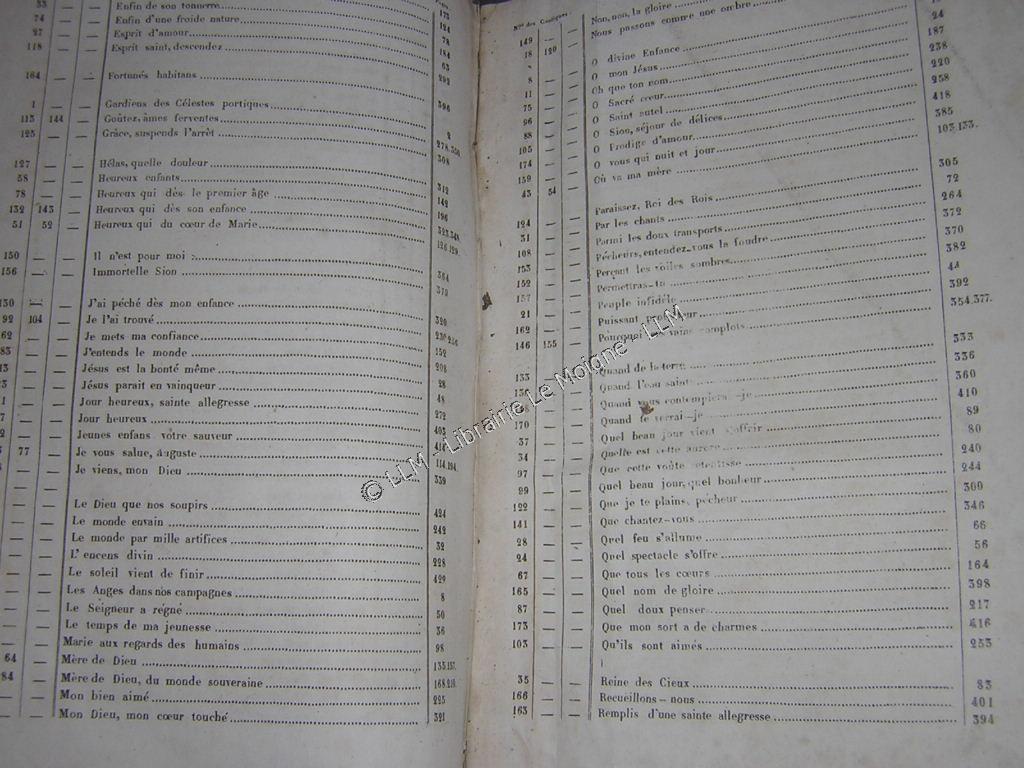 33 — — Enfin de son tonnerre 173
74 — — Enfin d'une froide nature 124
27 — — Esprit d'amour 78
118 — — Esprit saint, descendez
164 — — Fortunés habitans 292
1 — — Gardiens des Célestes portiques 396
113 144 — Goûtez, âmes ferventes 2
125 — — Grâce, suspends l'arrêt
127 — — Hélas, quelle douleur 308
58 — — Heureux enfants 312
78 — — Heureux qui dès le premier âge 142
132 143 — Heureux qui dès son enfance 196
51 52 — Heureux qui du cœur de Marie
150 — — Il n'est pour moi
156 — — Immortelle Sion
— — J'ai péché dès mon enfance
92 104 — Je l'ai trouvé 320
62 — — Je mets ma confiance
— — J'entends le monde 152
— — Jésus est la bonté même 208
— — Jésus parait en vainqueur 28
— — Jour heureux, sainte allegresse 48
— — Jour heureux 272
— — Jeunes enfans vôtre sauveur 403
77 — Je vous salue, auguste
— — Je viens, mon Dieu 114.194.
339
Le Dieu que nos soupirs 424
Le monde envain 242
Le monde par mille artifices 32
L'encens divin 228
Le soleil vient de finir 420
Les Anges dans nos campagnes 8
Le Seigneur a régné 50
Le temps de ma jeunesse 36
Marie aux regards des humains 98
64 — Mère de Dieu 135.157.
84 — Mère de Dieu, du monde souveraine
Mon bien aimé 225
Mon Dieu, mon cœur touché 321
Nos des Cantiques
149 — — Non, non, la gloire
18 120 — Nous passons comme une ombre
8 — — O divine Enfance 24
8 — — O mon Jésus 187
11 — — Oh que ton nom 238
75 — — O Sacré cœur 220
96 — — O Saint autel 258
88 — — O Sion, séjour de délices 418
105 — — O Prodige d'amour 385
174 — — O vous qui nuit et jour 103.133.
159 — — Où va ma mère
43 54 —
124 — — Paraissez, Roi des Rois 305
31 — — Par les chants 72
108 — — Parmi les doux transports 264
153 — — Pécheurs, entendez-vous la foudre 372
152 — — Perçant les voiles sombres 370
157 — — Permettras-tu 382
21 — — Peuple infidèle 44
162 — — Puissant Protecteur 392
146 155 — Pourquoi ces vains complots 354.377.
133 — — Quand de la terre 333
— — Quand l'eau sainte 336
— — Quand vous contemplerai-je 360
170 — — Quand te verrai-je 410
37 — — Quel beau jour vient s'offrir 89
34 — — Quelle est cette aurore 80
97 — — Que cette voûte retentisse 240
99 — — Quel beau jour, quel bonheur 244
122 — — Que je te plains, pécheur 300
141 — — Que chantez-vous 346
28 — — Quel feu s'allume 66
24 — — Quel spectacle s'offre 56
67 — — Que tous les cœurs 164
165 — — Quel nom de gloire 398
87 — — Quel doux penser 217
173 — — Que mon sort a de charmes 416
103 — — Qu'ils sont aimés 253
35 — — Reine des Cieux 83
166 — — Recueillons-nous 401
163 — — Remplis d'une sainte allegresse 394
© LLM - Librairie Le Moigne - LLM